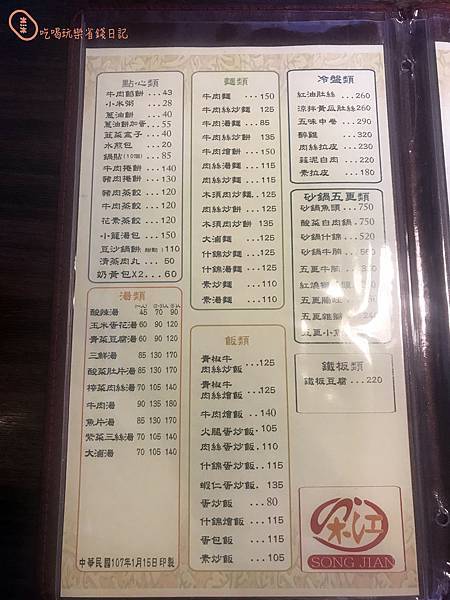 吃喝玩樂省錢日記
點心類
牛肉餡餅...43
小米粥...28
蔥油餅...40
蔥油餅加蛋...55
韮菜盒子...40
水煎包...20
鍋貼(10個)...85
牛肉捲餅...140
豬肉捲餅...130
豬肉蒸餃...120
牛肉蒸餃...120
花素蒸餃...120
小籠湯包...150
豆沙鍋餅(甜點)110
清蒸肉丸...50
奶黃包X2...60
湯類
酸辣湯 45 70 90
玉米蛋花湯 60 90 120
青菜豆腐湯 60 90 120
三鮮湯 85 130 170
酸菜肚片湯 85 130 170
榨菜肉絲湯 70 105 140
牛肉湯 90 135 180
魚片湯 85 130 170
紫菜三絲湯 70 105 140
大滷湯 70 105 140
中華民國107年1月15日印製
麵類
牛肉麵...150
牛肉絲炒麵 125
牛肉湯麵...85
牛肉絲炒餅 135
牛肉燴餅...150
肉絲湯麵...110
肉絲炒麵...115
木須肉炒麵 125
肉絲炒餅...125
木須肉炒餅 135
大滷麵...125
什錦炒麵...125
什錦湯麵...125
素炒麵...110
素湯麵...110
飯類
青椒牛肉絲炒飯...125
青椒牛肉絲燴飯...125
牛肉燴飯...140
火腿蛋炒飯.105
肉絲蛋炒飯.110
什錦蛋炒飯..115
蝦仁蛋炒飯.135
蛋炒飯...80
什錦燴飯...115
蛋包飯...115
素炒飯...105
冷盤類
紅油肚絲...260
涼拌黃瓜肚絲260
五味中卷...290
醉雞...320
肉絲拉皮...230
蒜泥白肉...230
素拉皮...180
砂鍋五更類
砂鍋魚頭...750
酸菜白肉鍋.750
砂鍋什錦...520
砂鍋牛腩
五更牛腩
紅燒獅
五更腸旺
五更雞
五更小
鐵板類
鐵板豆腐...220
宋江
SONG JIAN